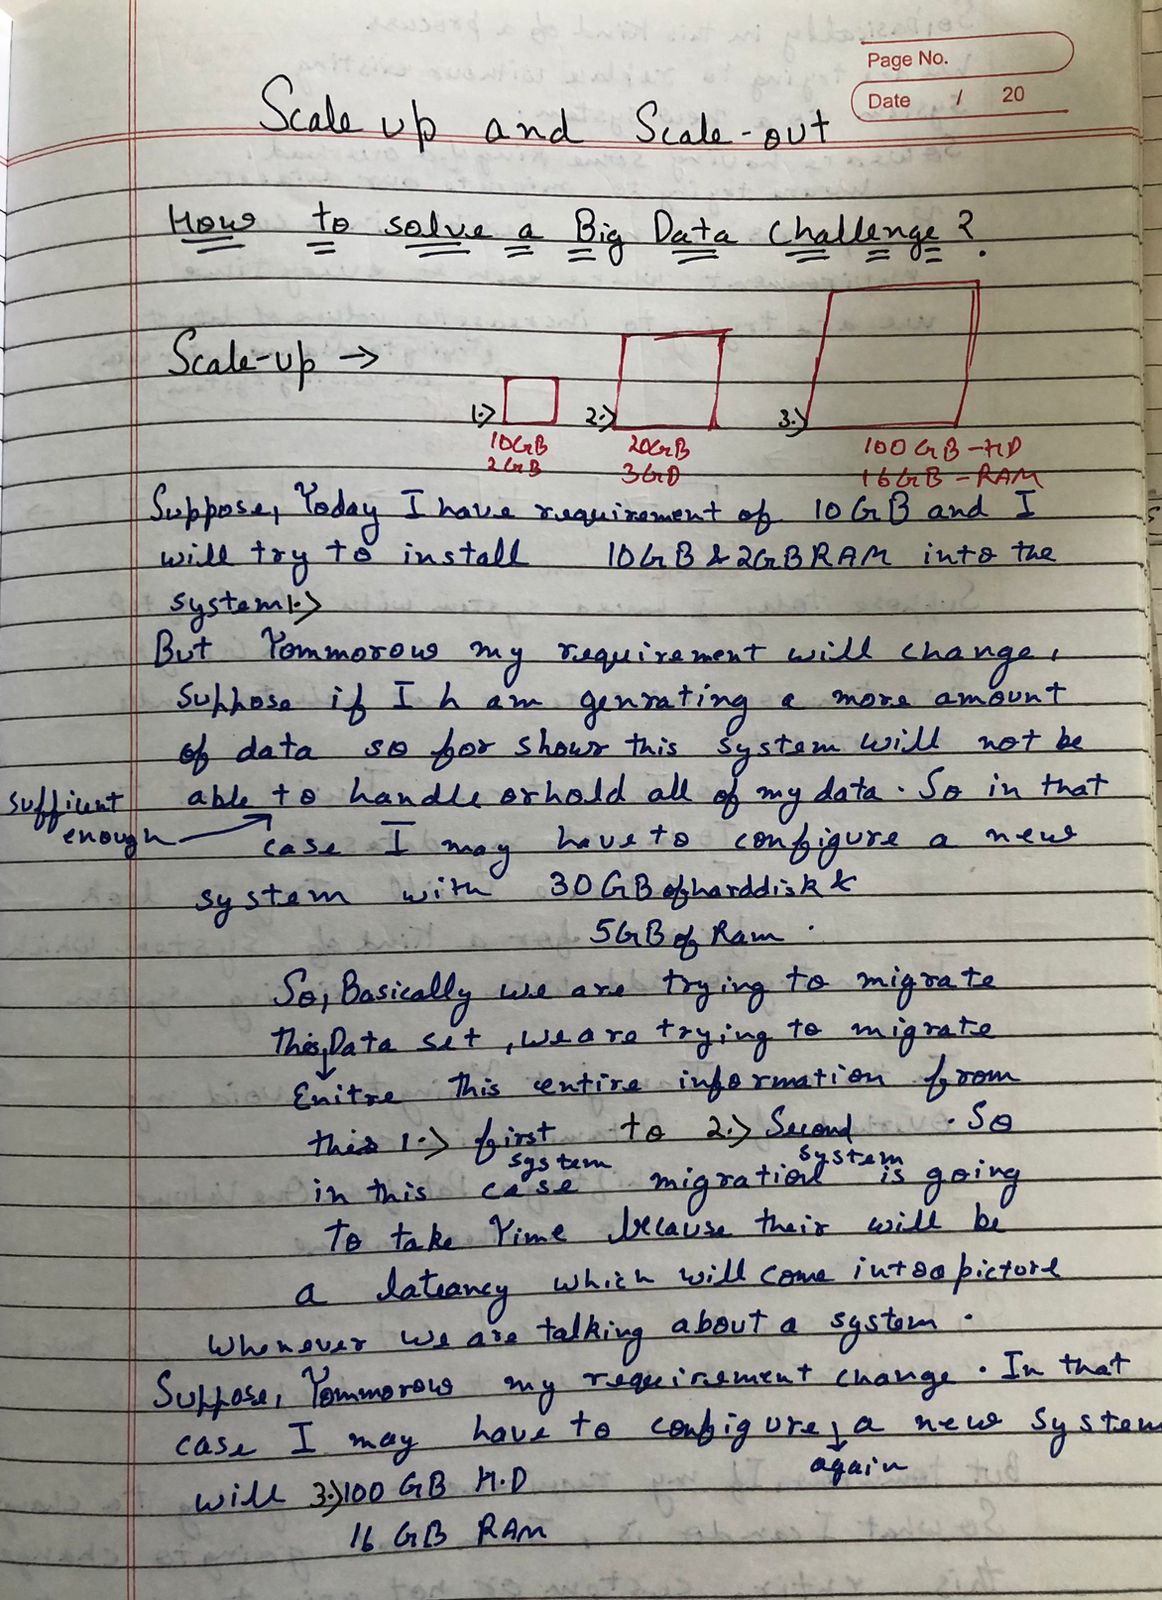 Page No.
Date / 20
Scale up and Scale-out
How to solve a Big Data Challenge?
Scale-up →
1.> 2.> 3.>
10GB 20GB 100 GB -HD
2GB 3GD 16GB - RAM
Suppose, Today I have requirement of 10 GB and I
will try to install 10GB & 2GB RAM into the
system 1.>
But Tommorow my requirement will change,
Suppose if I h am genrating a more amount
of data so for show this system will not be
sufficent able to handle or hold all of my data. So in that
enough case I may have to configure a new
system with 30 GB of harddisk &
5GB of Ram.
So, Basically we are trying to migrate
this Data set, we are trying to migrate
Enitre this entire information from
this 1.> first to 2.> Second . So
system system
in this case migration is going
To take Time because their will be
a lateancy which will come into a picture
whenever we are talking about a system.
Suppose, Tommorow my requirement change. In that
case I may have to configure, a new system
again
will 3.>100 GB H.D
16 GB RAM